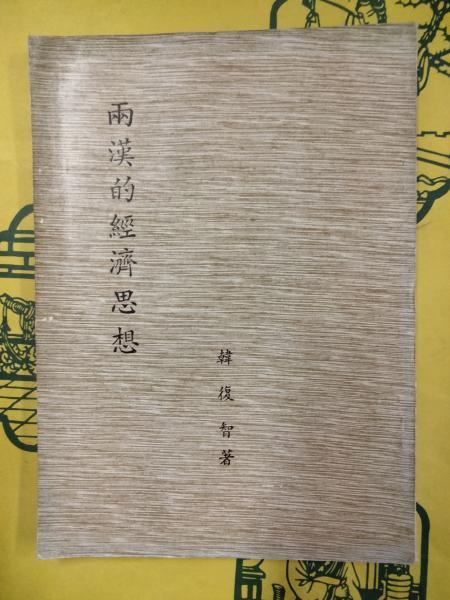 兩漢的經濟思想
韓復智著